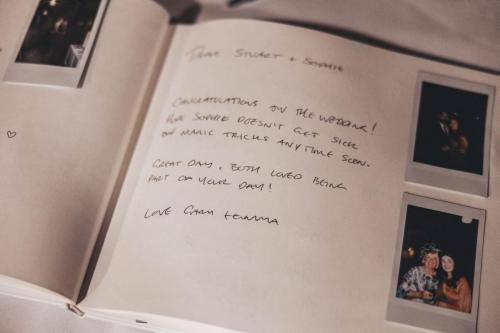 Dear Stuart + Sophie
Congratulations on the wedding!
Hope Sophie doesn't get sick
on magic tricks anytime soon.
Great day, both loved being
part of your day!
Love Gary + Emma